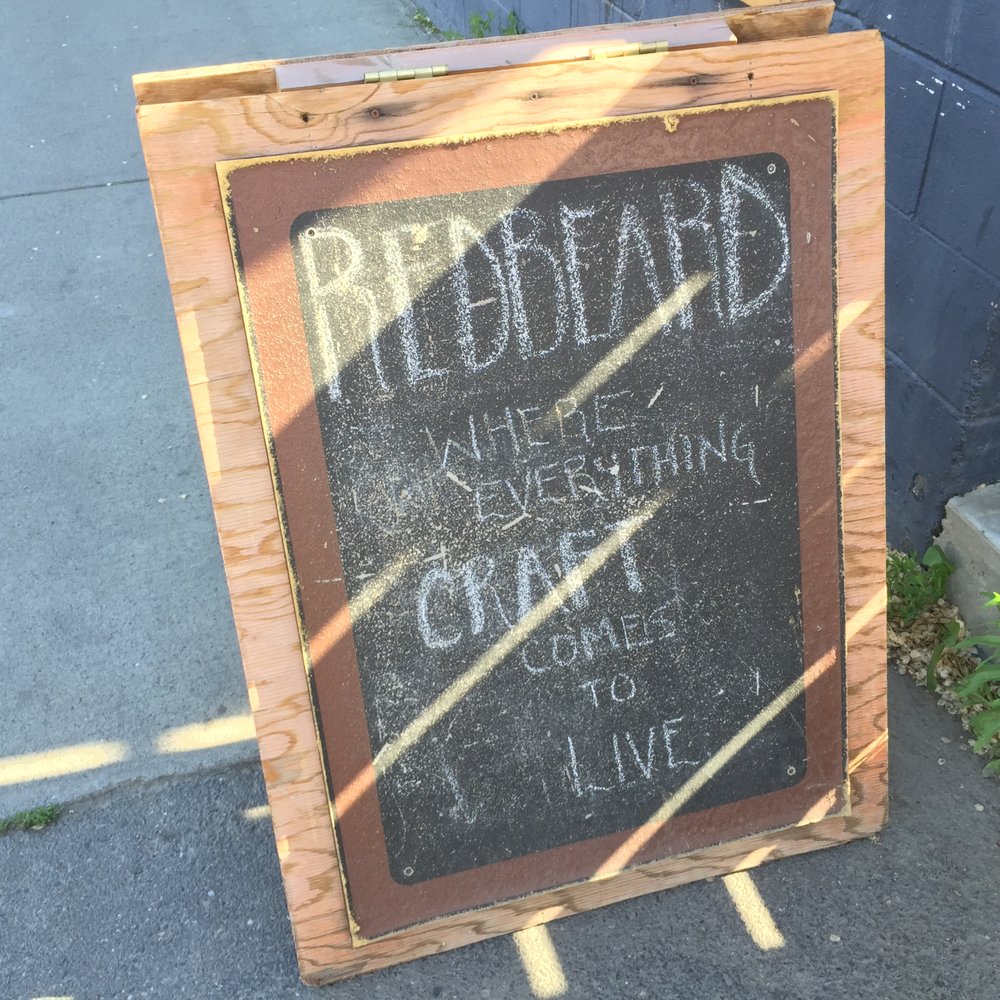 REDBEARD
WHERE
EVERYTHING
CRAFT
COMES
TO
LIVE